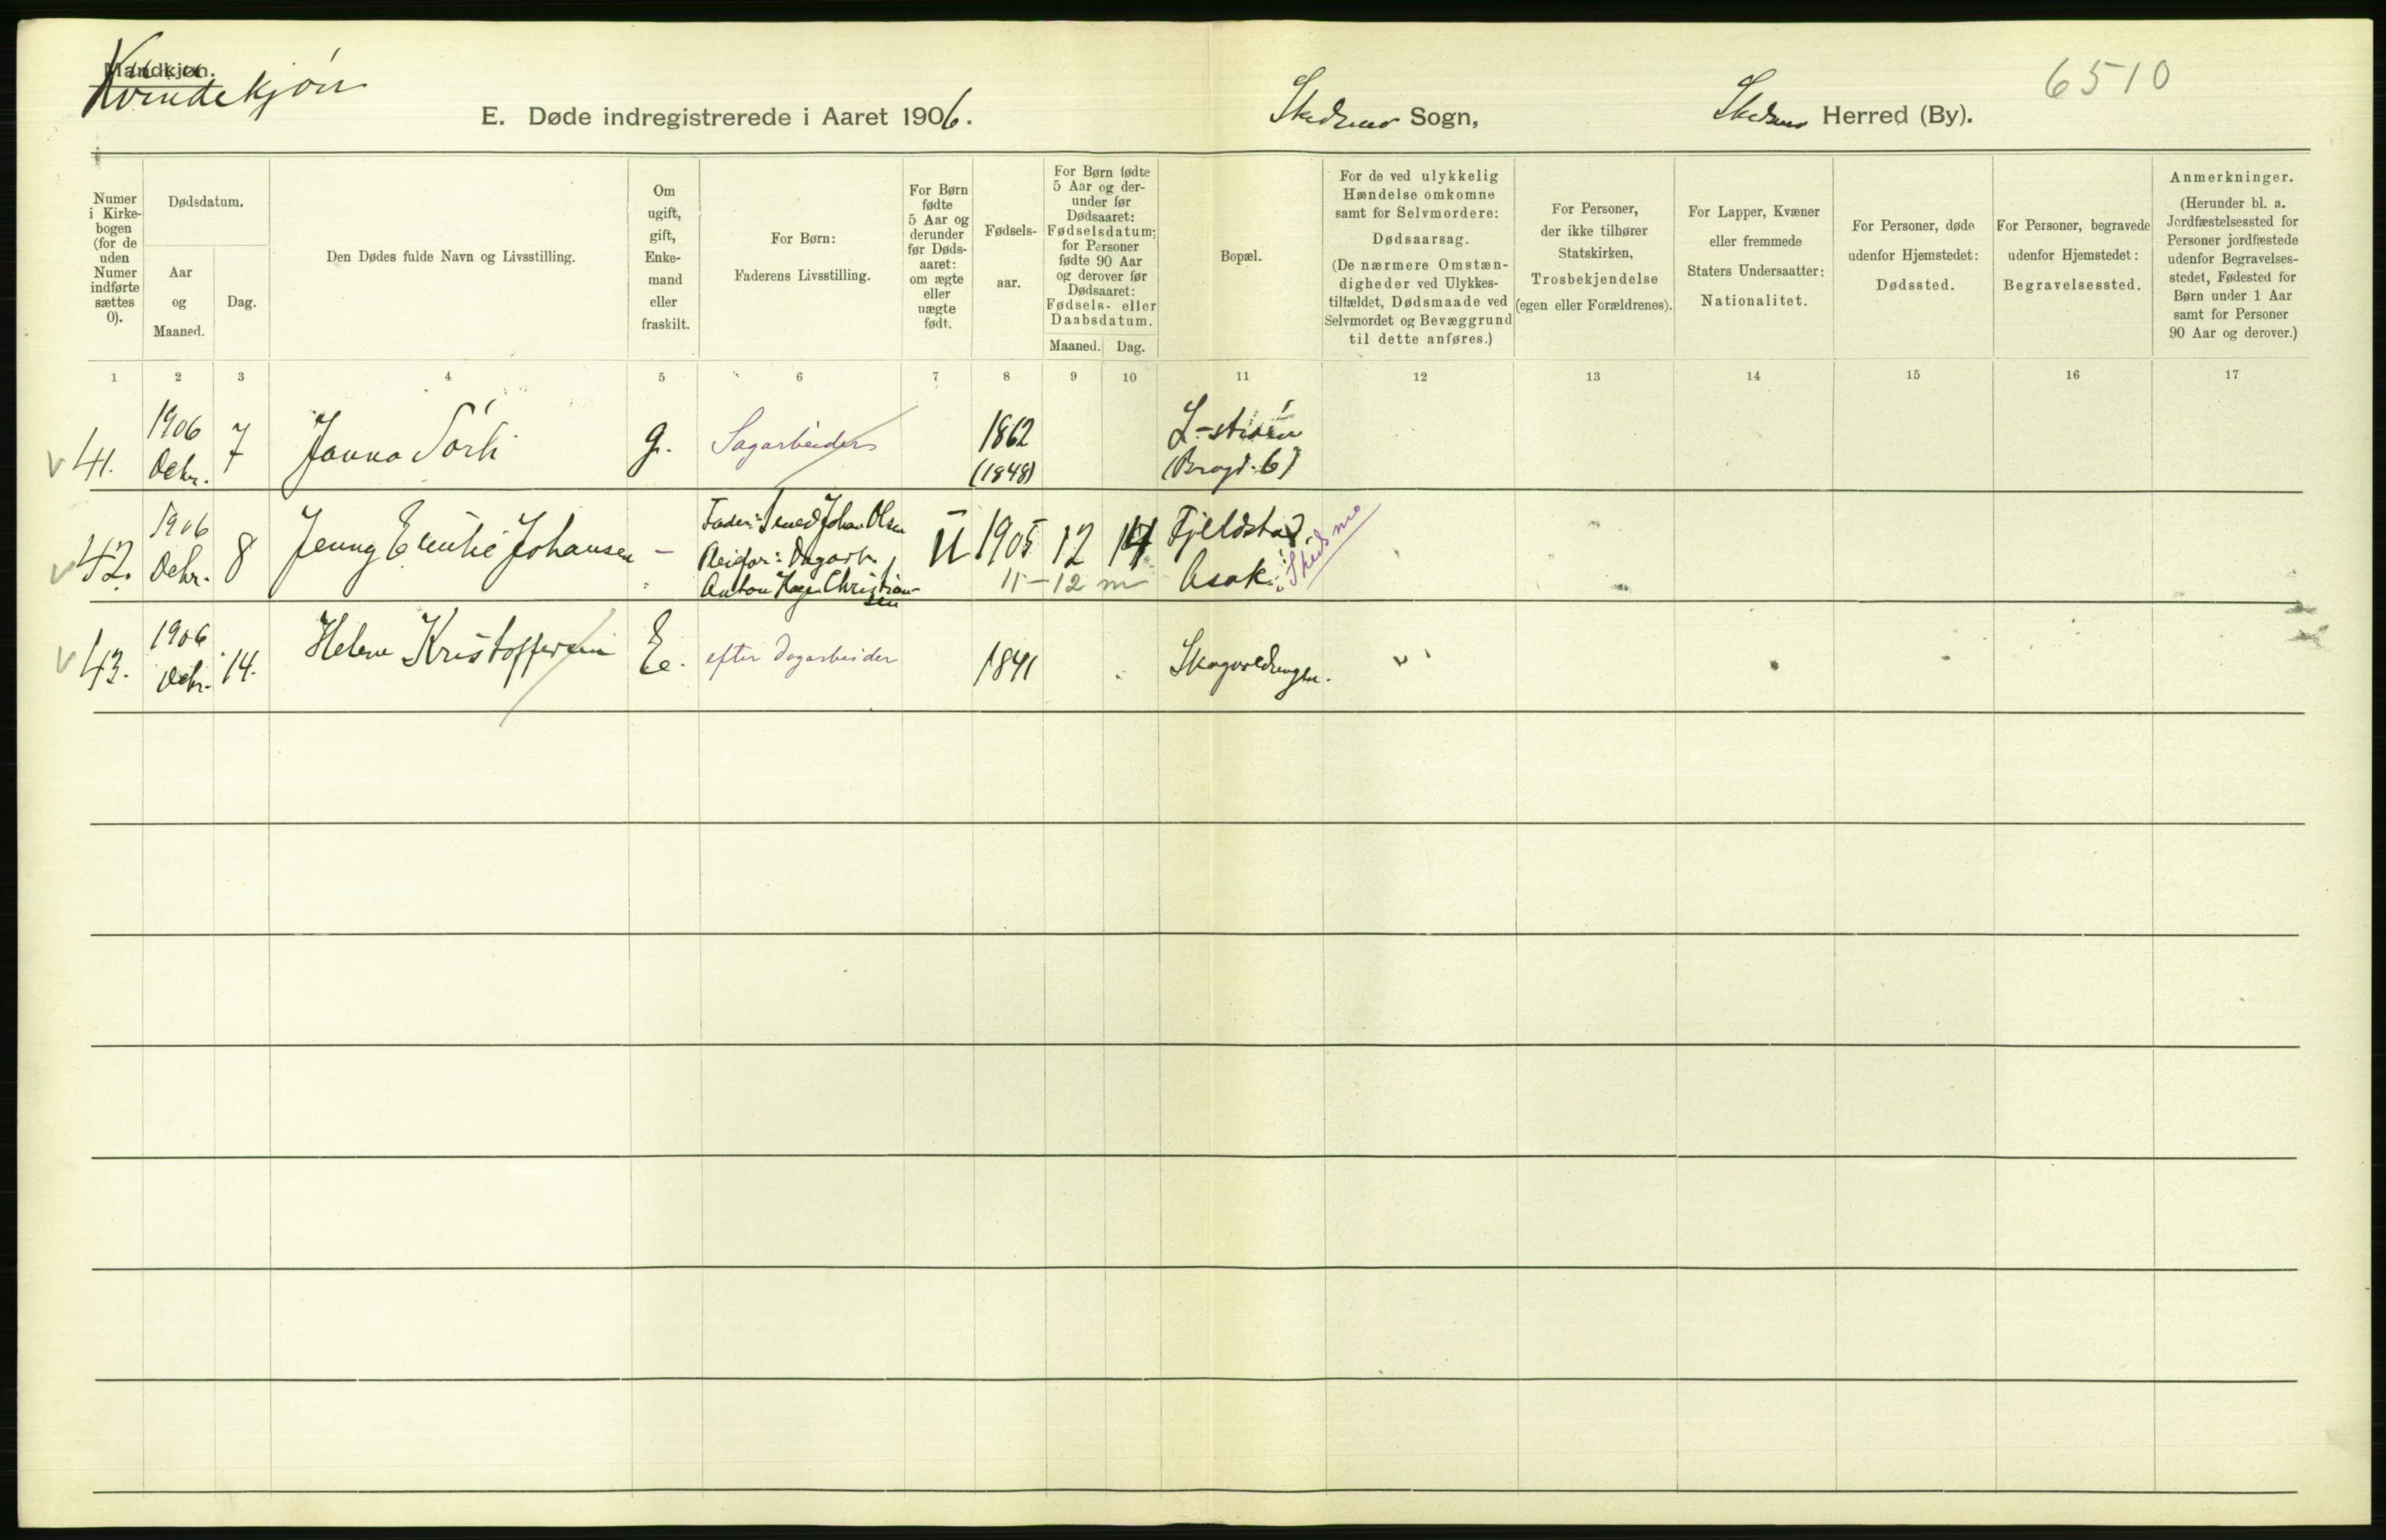 Mandkjøn.
Kvindekjøn
6510
E. Døde indregistrerede i Aaret 1906. Skedsmo Sogn, Skedsmo Herred (By).
Numer i Kirke-bogen (for de uden Numer indførte sættes 0).
Dødsdatum.
Aar og Maaned.
Dag.
Den Dødes fulde Navn og Livsstilling.
Om ugift, gift, Enke-mand eller fraskilt.
For Børn: Faderens Livsstilling.
For Børn fødte 5 Aar og derunder før Døds-aaret: om ægte eller uægte født.
Fødsels-aar.
For Børn fødte 5 Aar og der-under før Dødsaaret: Fødselsdatum; for Personer fødte 90 Aar og derover før Dødsaaret: Fødsels- eller Daabsdatum.
Maaned. Dag.
Bopæl.
For de ved ulykkelig Hændelse omkomne samt for Selvmordere: Dødsaarsag. (De nærmere Omstæn-digheder ved Ulykkes-tilfældet, Dødsmaade ved Selvmordet og Bevæggrund til dette anføres.)
For Personer, der ikke tilhører Statskirken, Trosbekjendelse (egen eller Forældrenes).
For Lapper, Kvæner eller fremmede Staters Undersaatter: Nationalitet.
For Personer, døde udenfor Hjemstedet: Dødssted.
For Personer, begravede udenfor Hjemstedet: Begravelsessted.
Anmerkninger. (Herunder bl. a. Jordfæstelsessted for Personer jordfæstede udenfor Begravelses-stedet, Fødested for Børn under 1 Aar samt for Personer 90 Aar og derover.)
1 2 3 4 5 6 7 8 9 10 11 12 13 14 15 16 17
41. 1906 Decbr. 7 Janna Sørli g. Sagarbeider 1862 (1848) L-strøm
42. 1906 Decbr. 8 Jenny Emilie Johansen - Fader: Johan Olsen U 1905 12 14 Fjeldstad
Dagarb. Anton Hagen Christiansen 11-12 m Asak. Skedsmo
43. 1906 Decbr. 14. Helene Kristoffersen E. efter Dagarbeider 1841